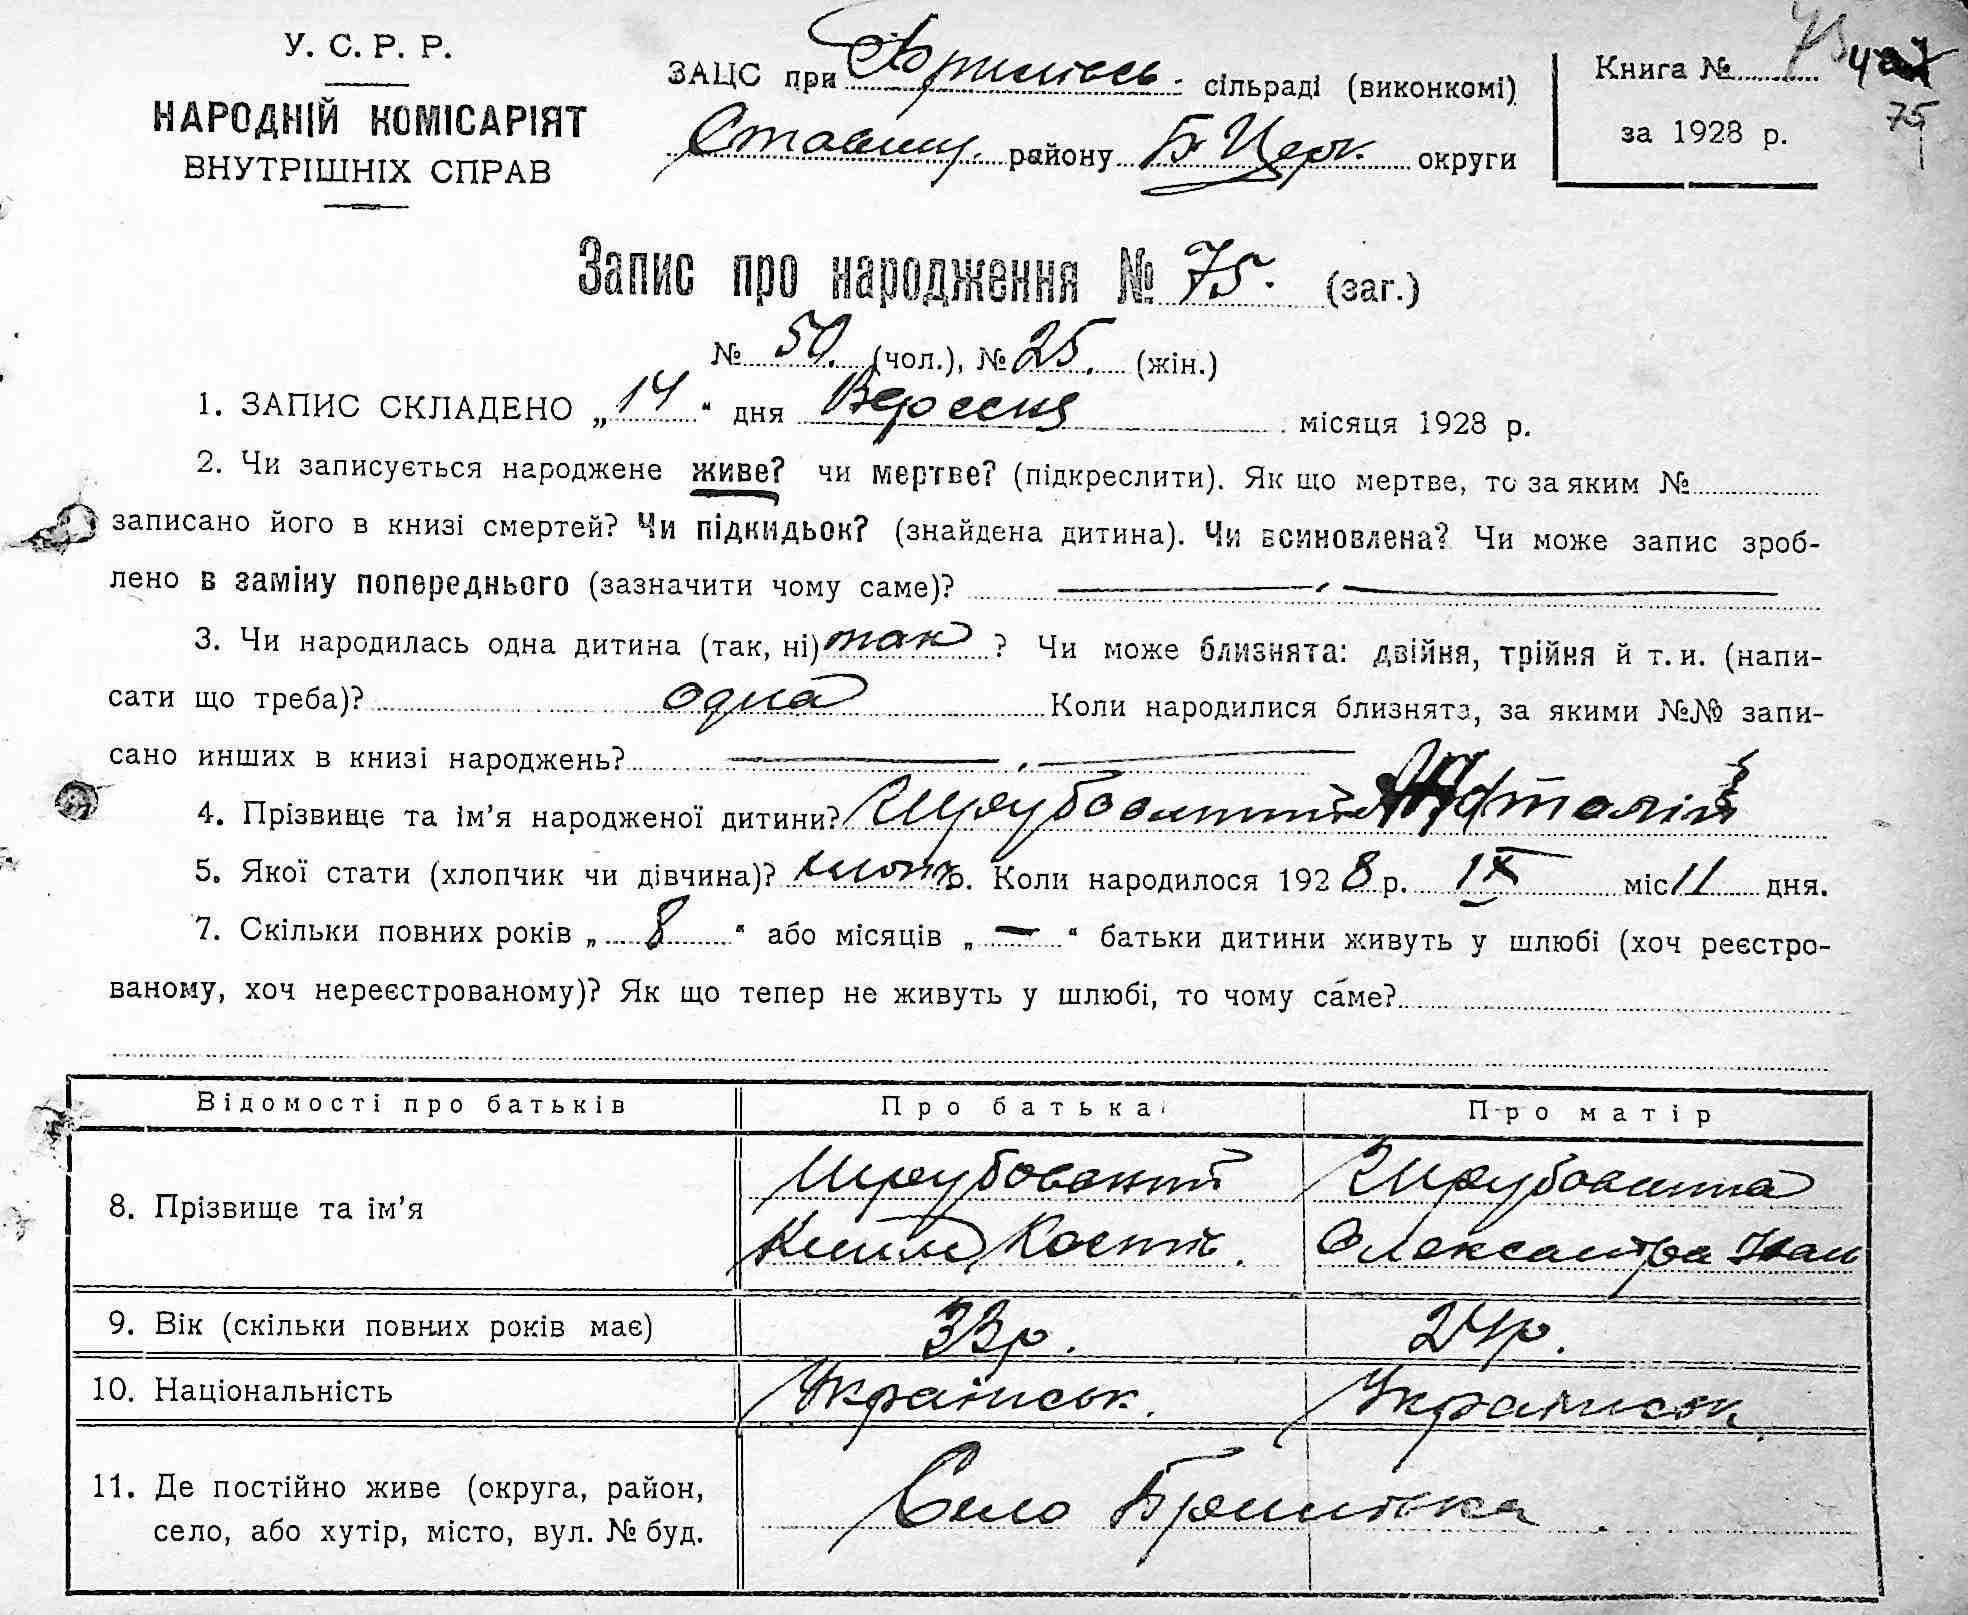 У. С. Р. Р.
НАРОДНІЙ КОМІСАРІЯТ
ВНУТРІШНІХ СПРАВ
ЗАЦС при сільраді (виконкомі)
Ставищ. району Б-Церк. округи
Книга №
за 1928 р.
75
Запис про народження № 75. (заг.)
№ 50. (чол.), № 25. (жін.)
1. ЗАПИС СКЛАДЕНО „ 14 “ дня Вересня місяця 1928 р.
2. Чи записується народжене живе? чи мертве? (підкреслити). Як що мертве, то за яким №
записано його в книзі смертей? Чи підкидьок? (знайдена дитина). Чи всиновлена? Чи може запис зроб-
лено в заміну попереднього (зазначити чому саме)?
3. Чи народилась одна дитина (так, ні) так ? Чи може близнята: двійня, трійня й т. и. (напи-
сати що треба)? одна Коли народилися близнята, за якими №№ запи-
сано инших в книзі народжень?
4. Прізвище та ім’я народженої дитини? Шрубовський
5. Якої стати (хлопчик чи дівчина)? хлопч. Коли народилося 1928 р. IX міс 11 дня.
7. Скільки повних років „ 8 “ або місяців „ — “ батьки дитини живуть у шлюбі (хоч реєстро-
ваному, хоч нереєстрованому)? Як що тепер не живуть у шлюбі, то чому са́ме?
Відомості про батьків Про батька Про матір
8. Прізвище та ім’я Шрубовський Шрубовська
Кость. Олександра Іван
9. Вік (скільки повних років має) 33 р. 24 р.
10. Національність Українськ. Українськ.
11. Де постійно живе (округа, район,
село, або хутір, місто, вул. № буд. Село